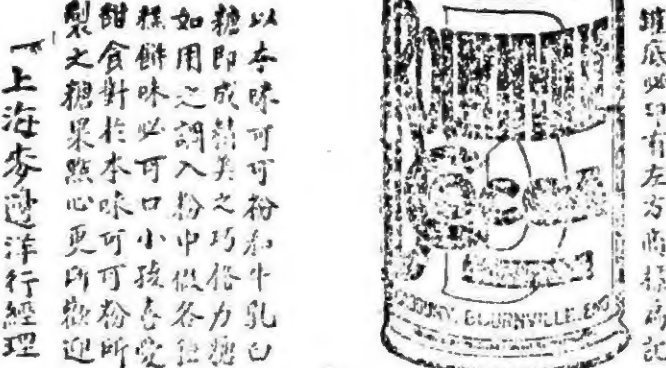 罐底必印有左方商標為記
BOURNVILLE
以本味可可粉和牛乳白
糖即成精美之巧格力糖
如用之調入粉巾做各種
糕餅味必可口小孩喜愛
甜食對於本味可可粉所
製之糖果點心更所歡迎
上海麥邊洋行經理